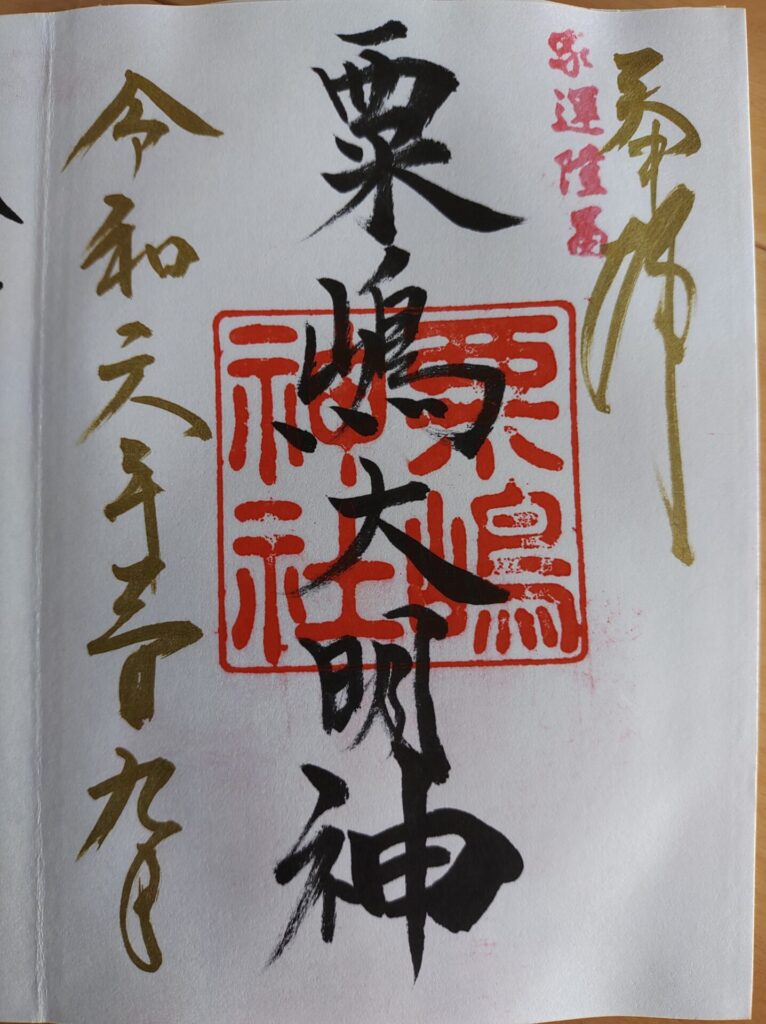 奉拝
家運隆昌
粟嶋大明神
粟嶋
神社
令和六年三月九日